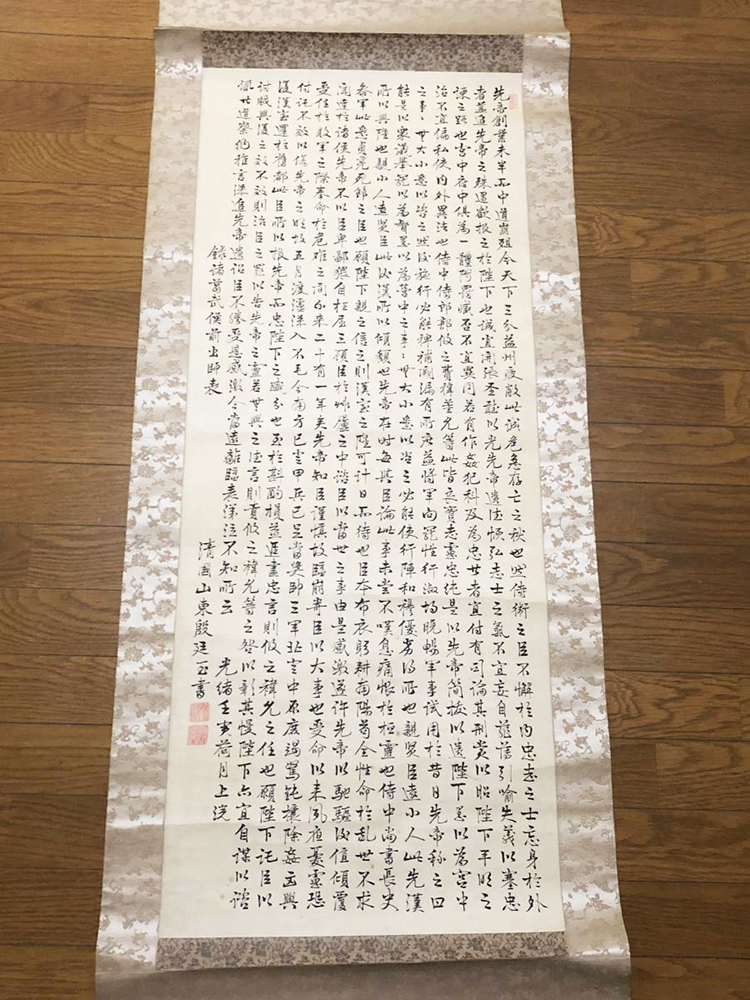 先帝創業未半而中道崩殂今天下三分益州疲敝此誠危急存亡之秋也然侍衛之臣不懈於內忠志之士忘身於外
者蓋追先帝之殊遇欲報之於陛下也誠宜開張聖聽以光先帝遺德恢弘志士之氣不宜妄自菲薄引喻失義以塞忠
諫之路也宮中府中俱為一體陟罰臧否不宜異同若有作姦犯科及為忠善者宜付有司論其刑賞以昭陛下平明之
治不宜偏私使內外異法也侍中侍郎郭攸之費禕董允等此皆良實志慮忠純是以先帝簡拔以遺陛下愚以為宮中
之事事無大小悉以咨之然後施行必能裨補闕漏有所廣益將軍向寵性行淑均曉暢軍事試用於昔日先帝稱之曰
能是以眾議舉寵以為督愚以為營中之事事無大小悉以咨之必能使行陣和穆優劣得所也親賢臣遠小人此先漢
所以興隆也親小人遠賢臣此後漢所以傾頹也先帝在時每與臣論此事未嘗不嘆息痛恨於桓靈也侍中尚書長史
參軍此悉貞亮死節之臣也願陛下親之信之則漢室之隆可計日而待也臣本布衣躬耕南陽苟全性命於乱世不求
聞達於諸侯先帝不以臣卑鄙猥自枉屈三顧臣於草廬之中諮臣以當世之事由是感激遂許先帝以馳驅後值傾覆
受任於敗軍之際奉命於危難之間爾來二十有一年矣先帝知臣謹慎故臨崩寄臣以大事也受命以來夙夜憂慮恐
付託不效以傷先帝之明故五月渡瀘深入不毛今南方已定甲兵已足當獎帥三軍北定中原庶竭駑鈍攘除姦凶興
復漢室還於舊都此臣所以報先帝而忠陛下之職分也至於斟酌損益進盡忠言則攸之禕允之任也願陛下託臣以
討賊興復之效不效則治臣之罪以告先帝之靈若無興之德言則責攸之禕允等之咎以彰其慢陛下亦宜自謀以諮
諏善道察納雅言深追先帝遺詔臣不勝受恩感激今當遠離臨表涕泣不知所云 光緒壬寅荷月上浣
錄諸葛武侯前出師表
清國山東殷廷玉書